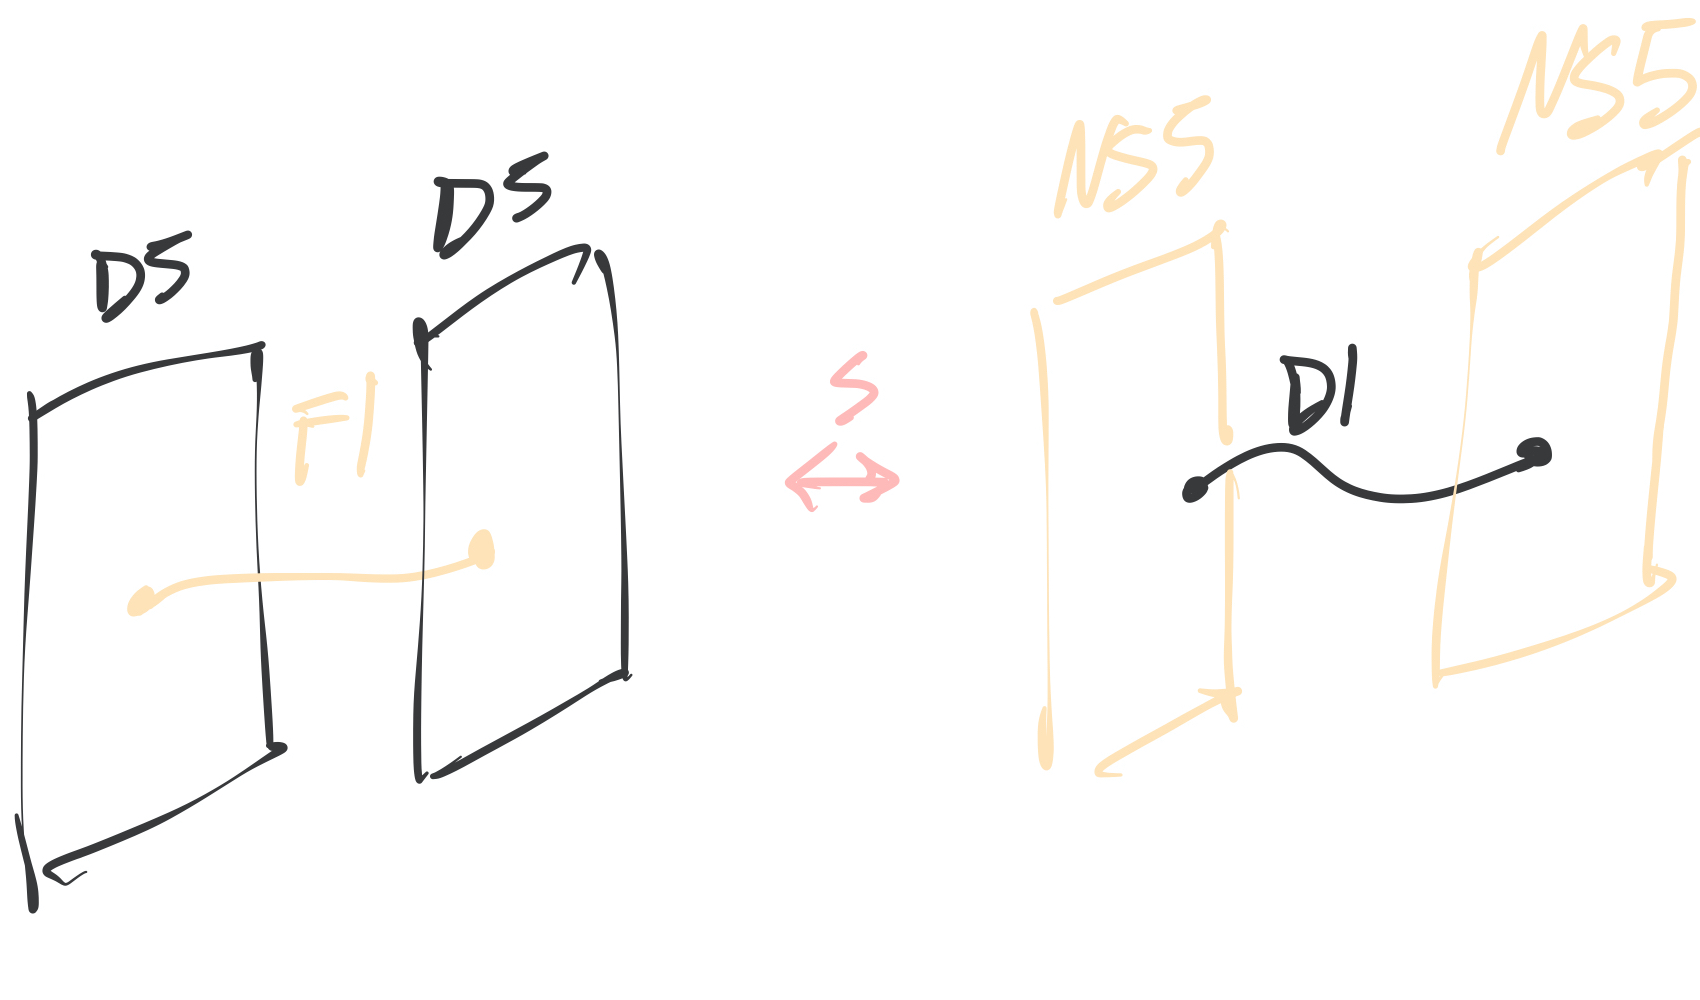 D5
D5
F1
S
NS5
NS5
D1